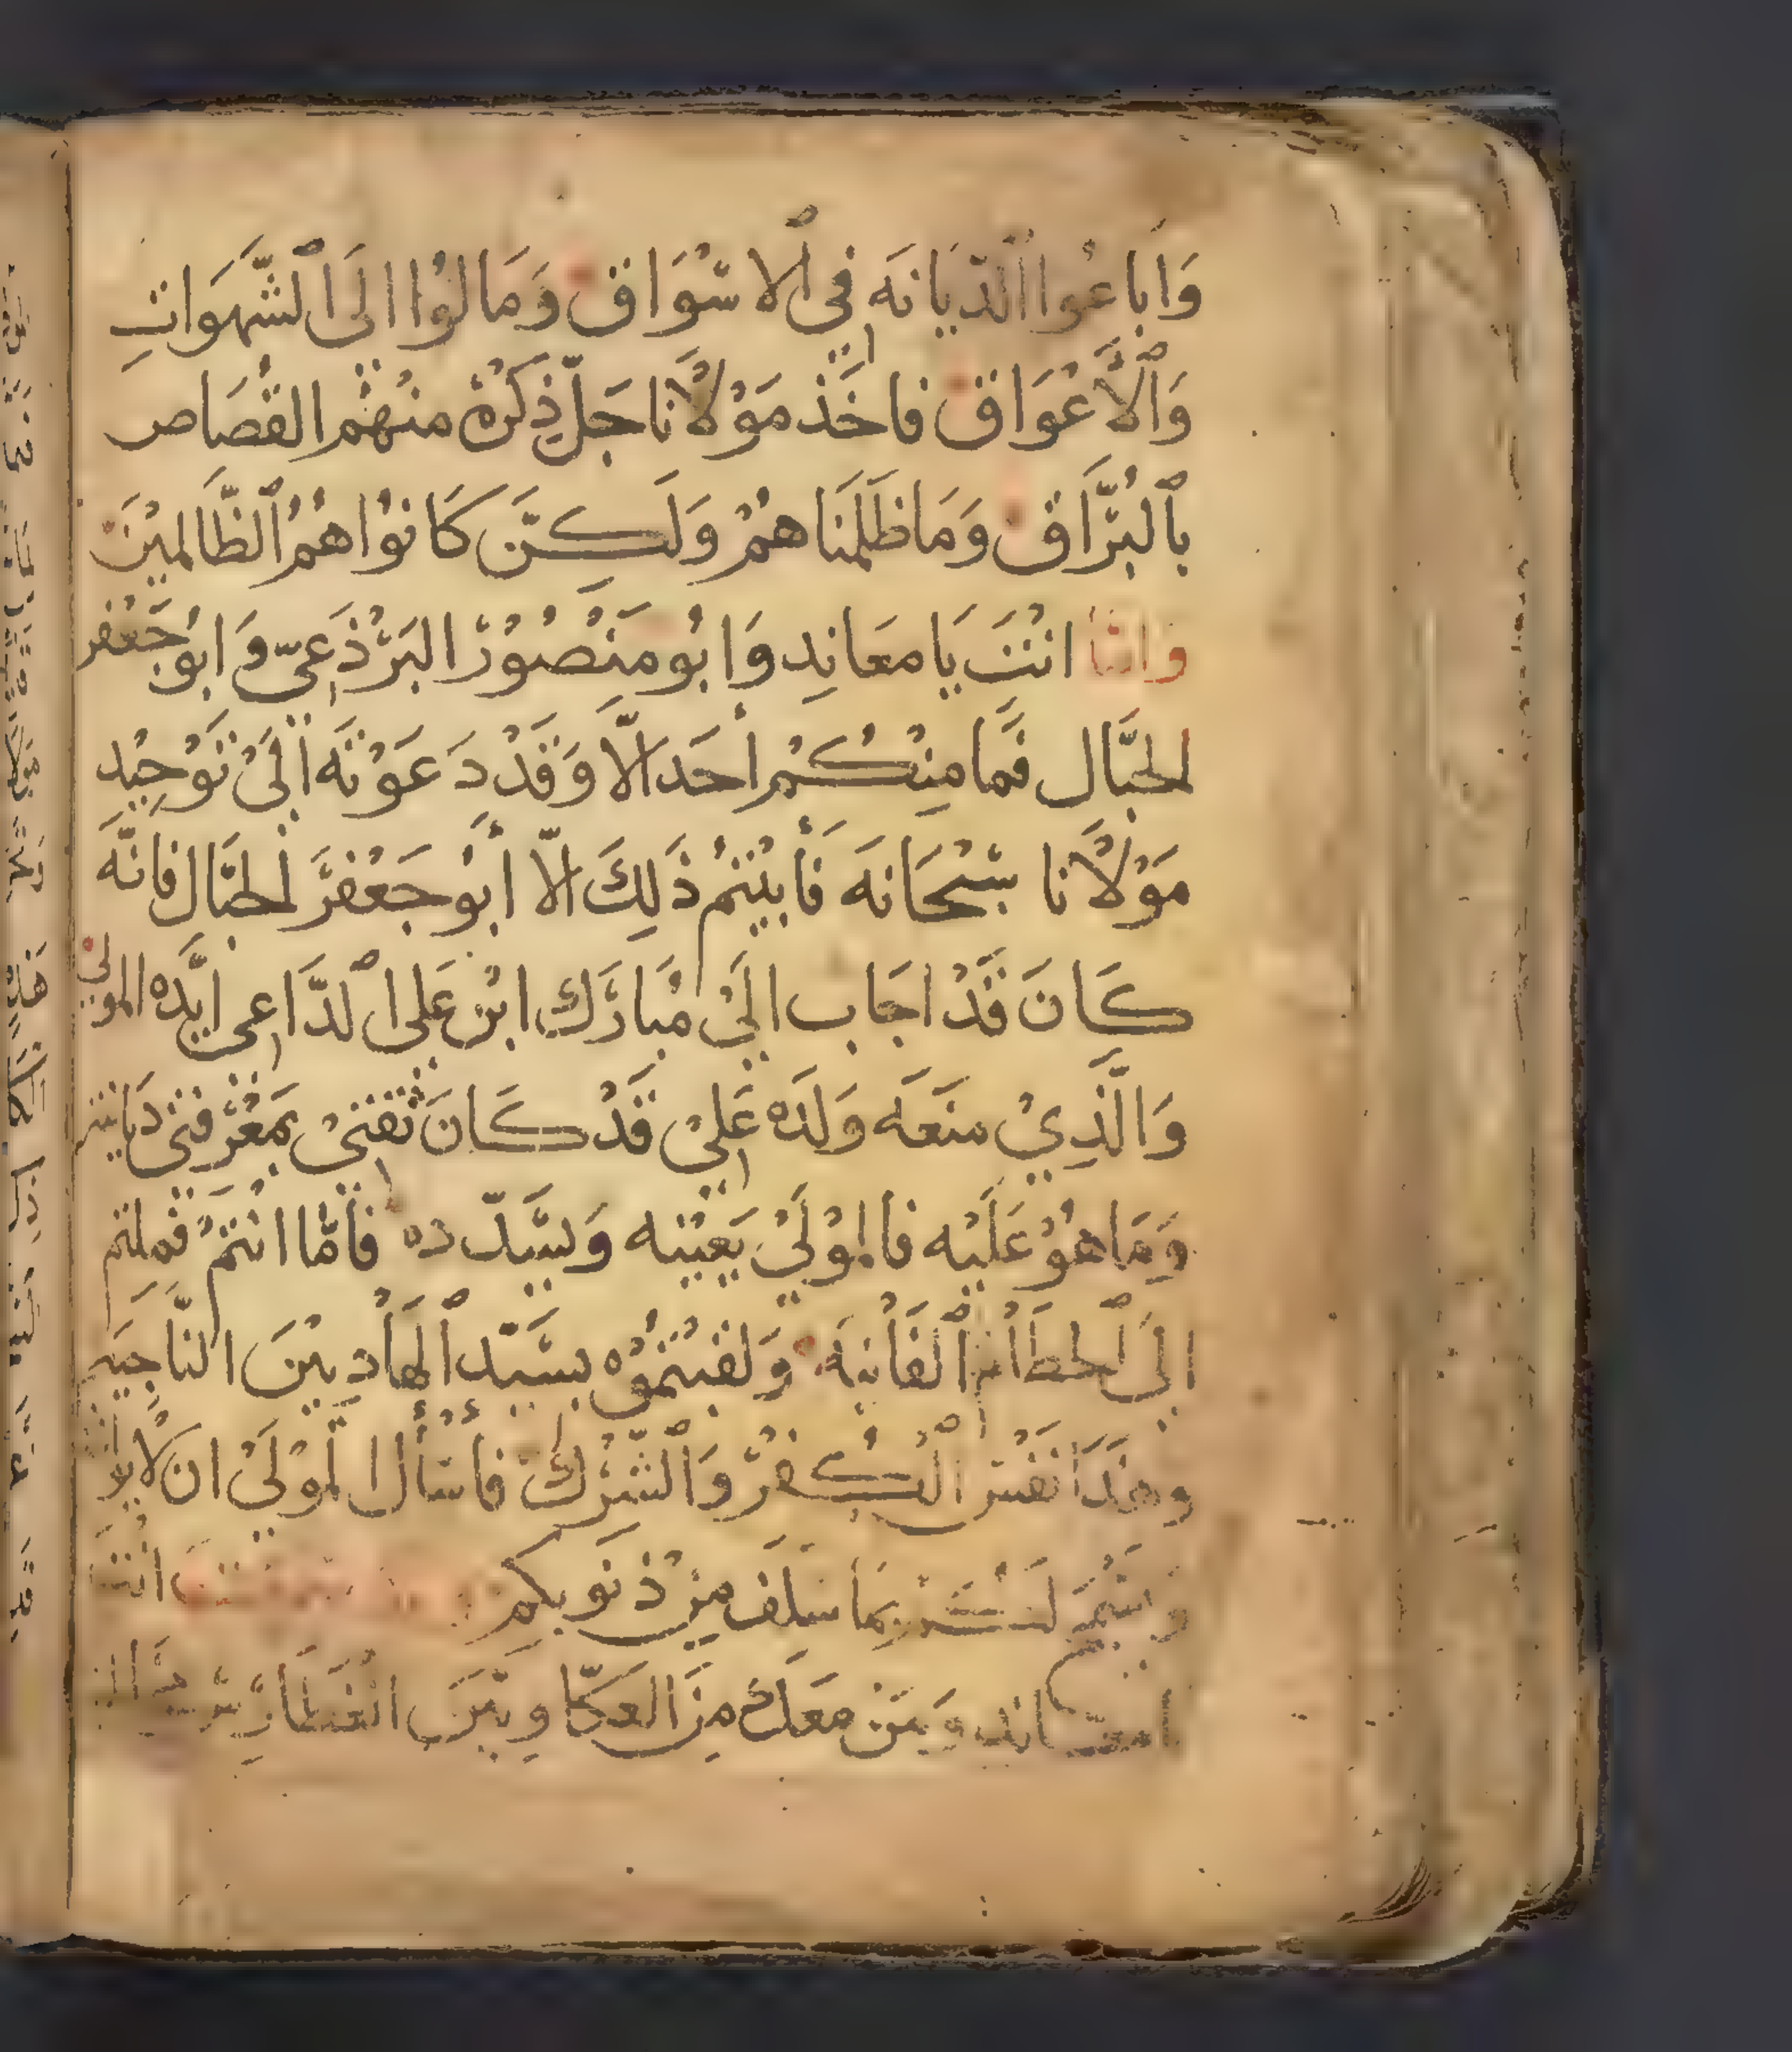 وَابَاعُوا الدّيَانَه فِي ٱلاسْوَاق وَمَالُوْا الَى ٱلشَّهَوَاتِ
وَٱلاَّعْوَاق فاخَذ مَوْلَانا جَلّ ذِكْرهُ منْهُم القْصَاص
بٱلبُرَّاق وَمَا ظَلَمْنَاهُمْ وَلَكِنَّ كَانوُا هُمُ ٱلظَّالميْنَ
وَامّا انْتَ يَا معَانِد وَابُو مَنْصُوْرْ البَرْذَعِيّ وَابوُ جَعْفر
الحبَّال فَمَا مِنْكُمْ أحَد الّا وَقَدْ دَعَوْتَه الَىْ تَوْحِيْد
مَوْلَانا سُبْحَانَه فَأبيْتمُ ذَلِكَ الّا أبوُ جَعْفرَ الحبَّال فانَّه
كَانَ قَدْ اجَاب الَيْ مُبَارَك ابْن عَلي ٱلدَّاعي ايَّده المولىْ
وَالَّذِيْ منَعَه وَلَدَه عَليْ قَدْ كَانَ ثقتيْ بمَعْرفتيْ دَيانته
وَمَا هُوْ عَلَيْه فالموْلَىْ يَعيْنه وَيسَدّده فأمَّا انتمْ فملتم
الَى ٱلحطَام ٱلفَانيَه وَلقبتمُوْه بسَيّد ٱلهَادِيْنَ النَّاجيَه
وهذَا نفْس ٱلكُفرْ وَٱلشّرْك فأسْأل الموْلَىْ ان لَا
بمَا سَلَف مِنْ ذنوبكم انْتَ
وَمَنْ مَعَك مِنَ العكَّاوِيّيَن